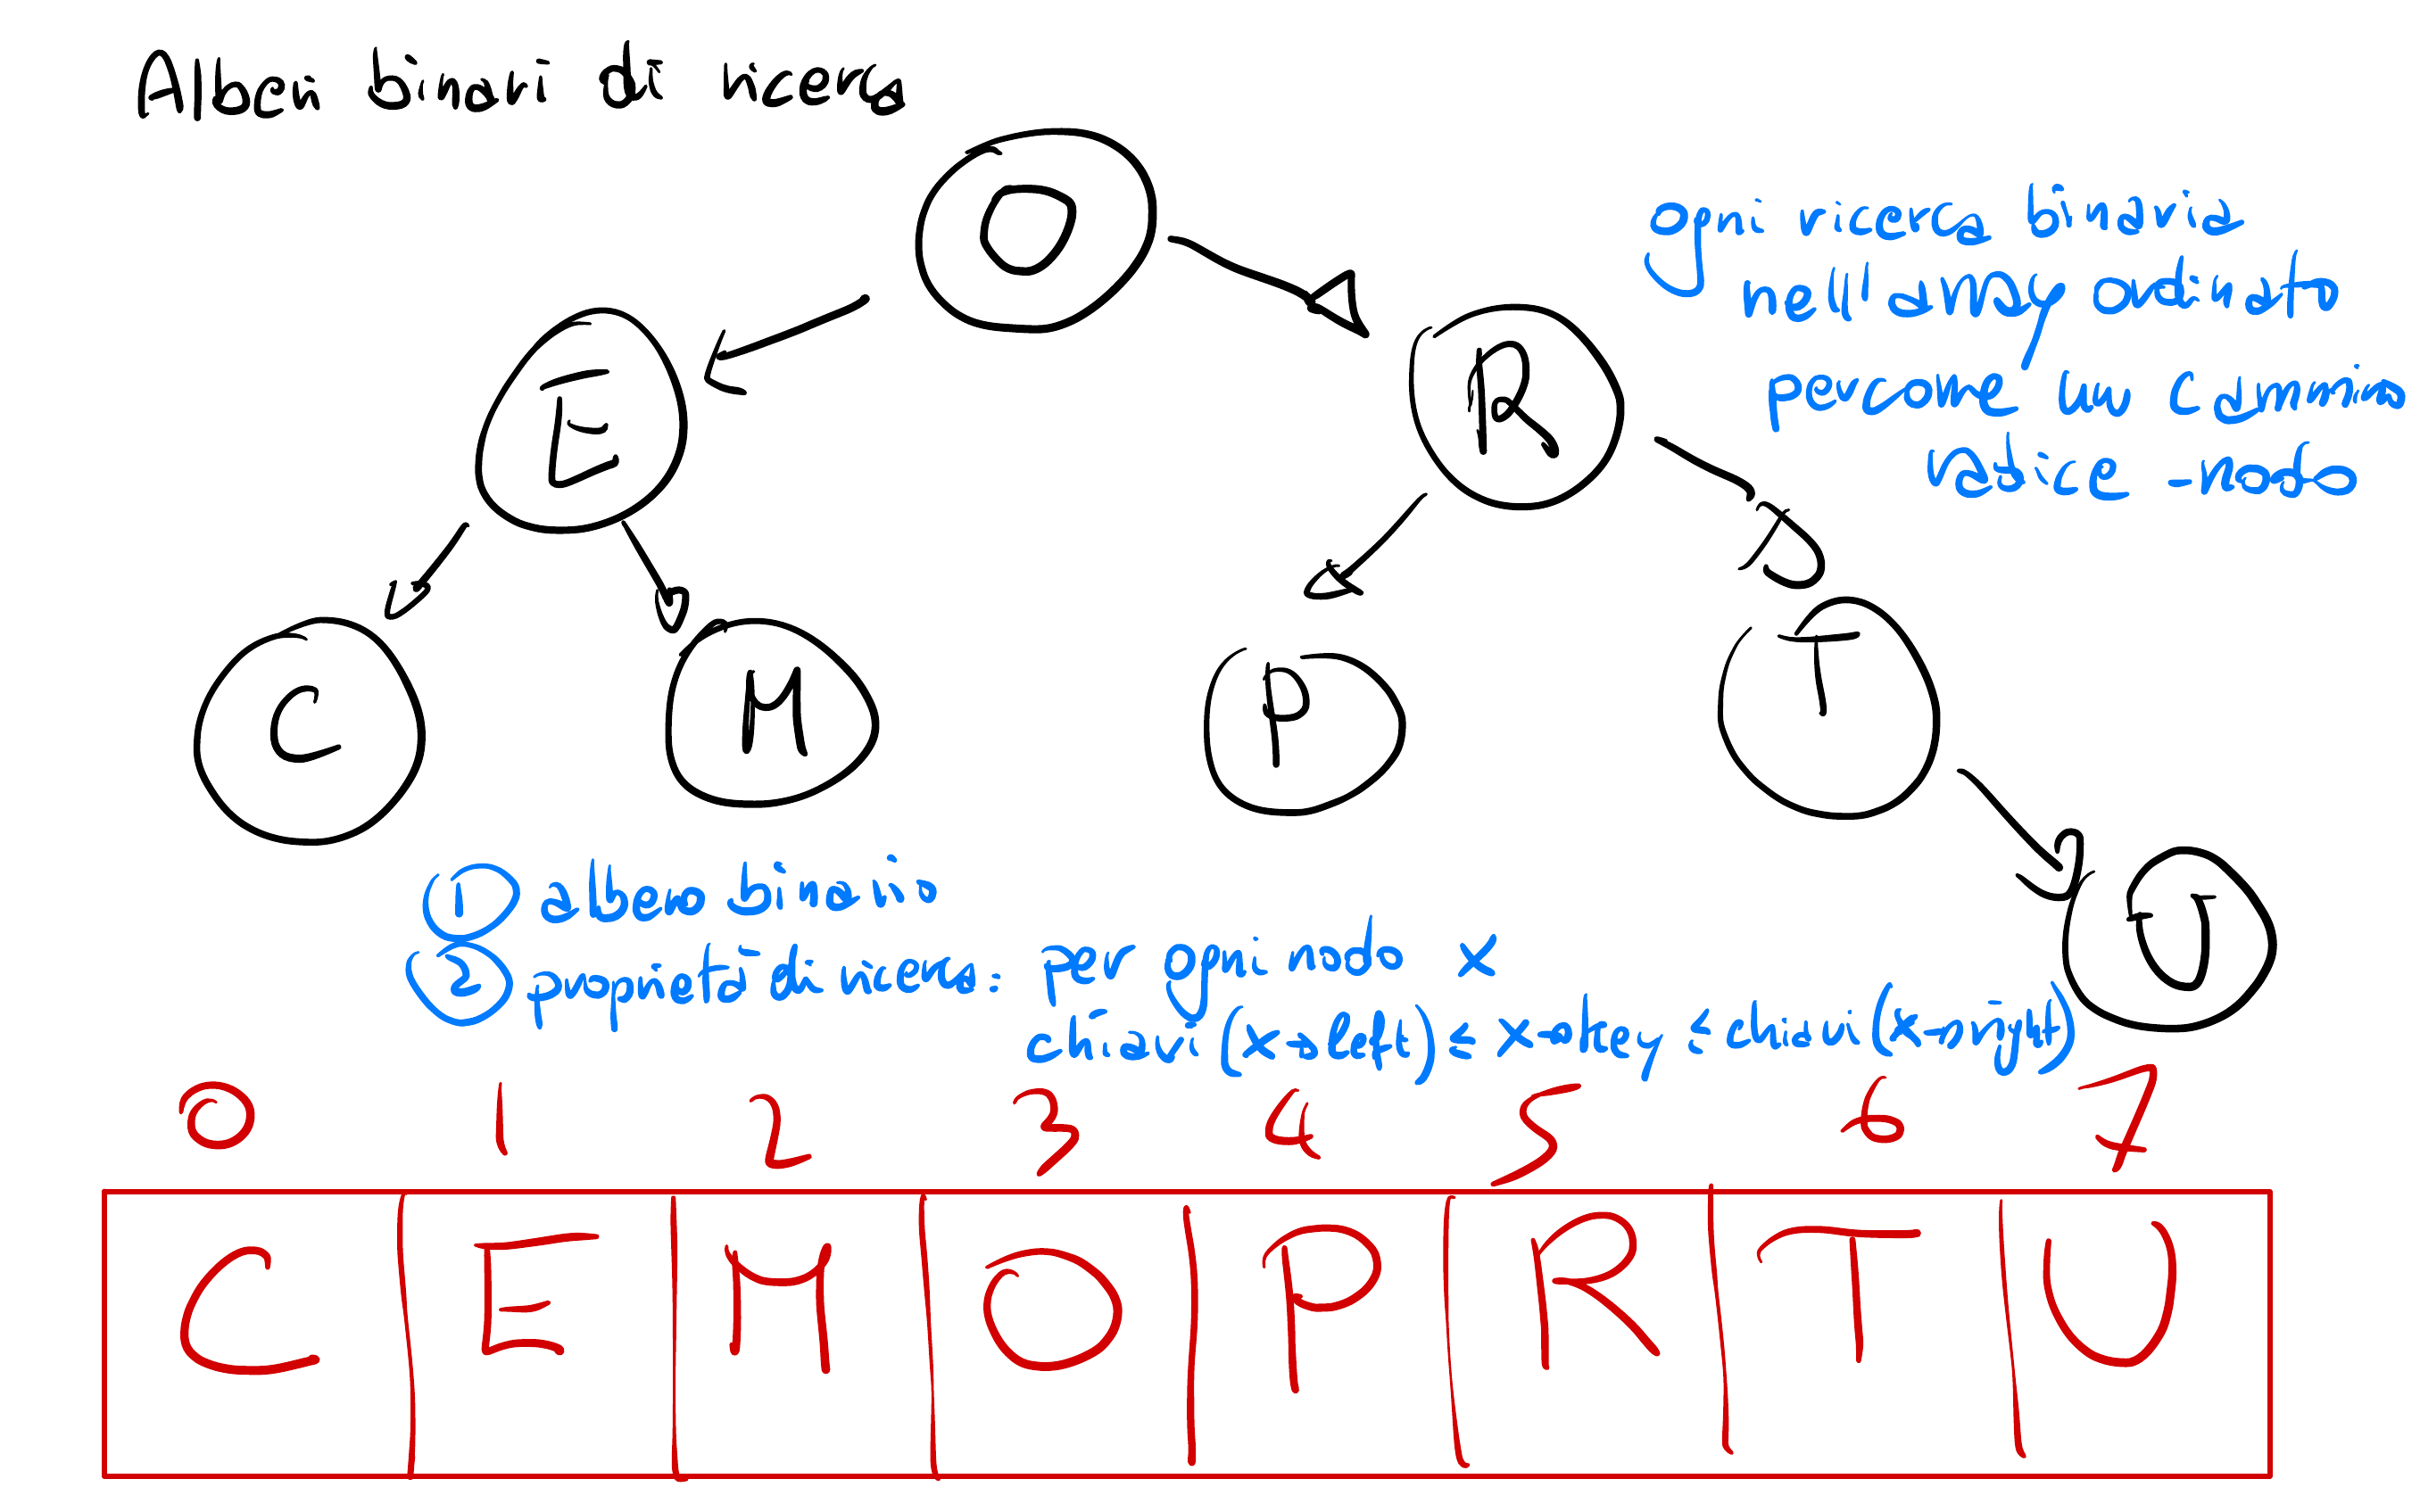 Alberi binari di ricerca
O
ogni ricerca binaria
nell'array ordinato
percorre un cammino
radice - nodo
E
R
C
M
P
T
U
1 albero binario
2 proprietà di ricerca: per ogni nodo x
chiavi (x→left) ≤ x→key ≤ chiavi (x→right)
0 1 2 3 4 5 6 7
C E M O P R T U